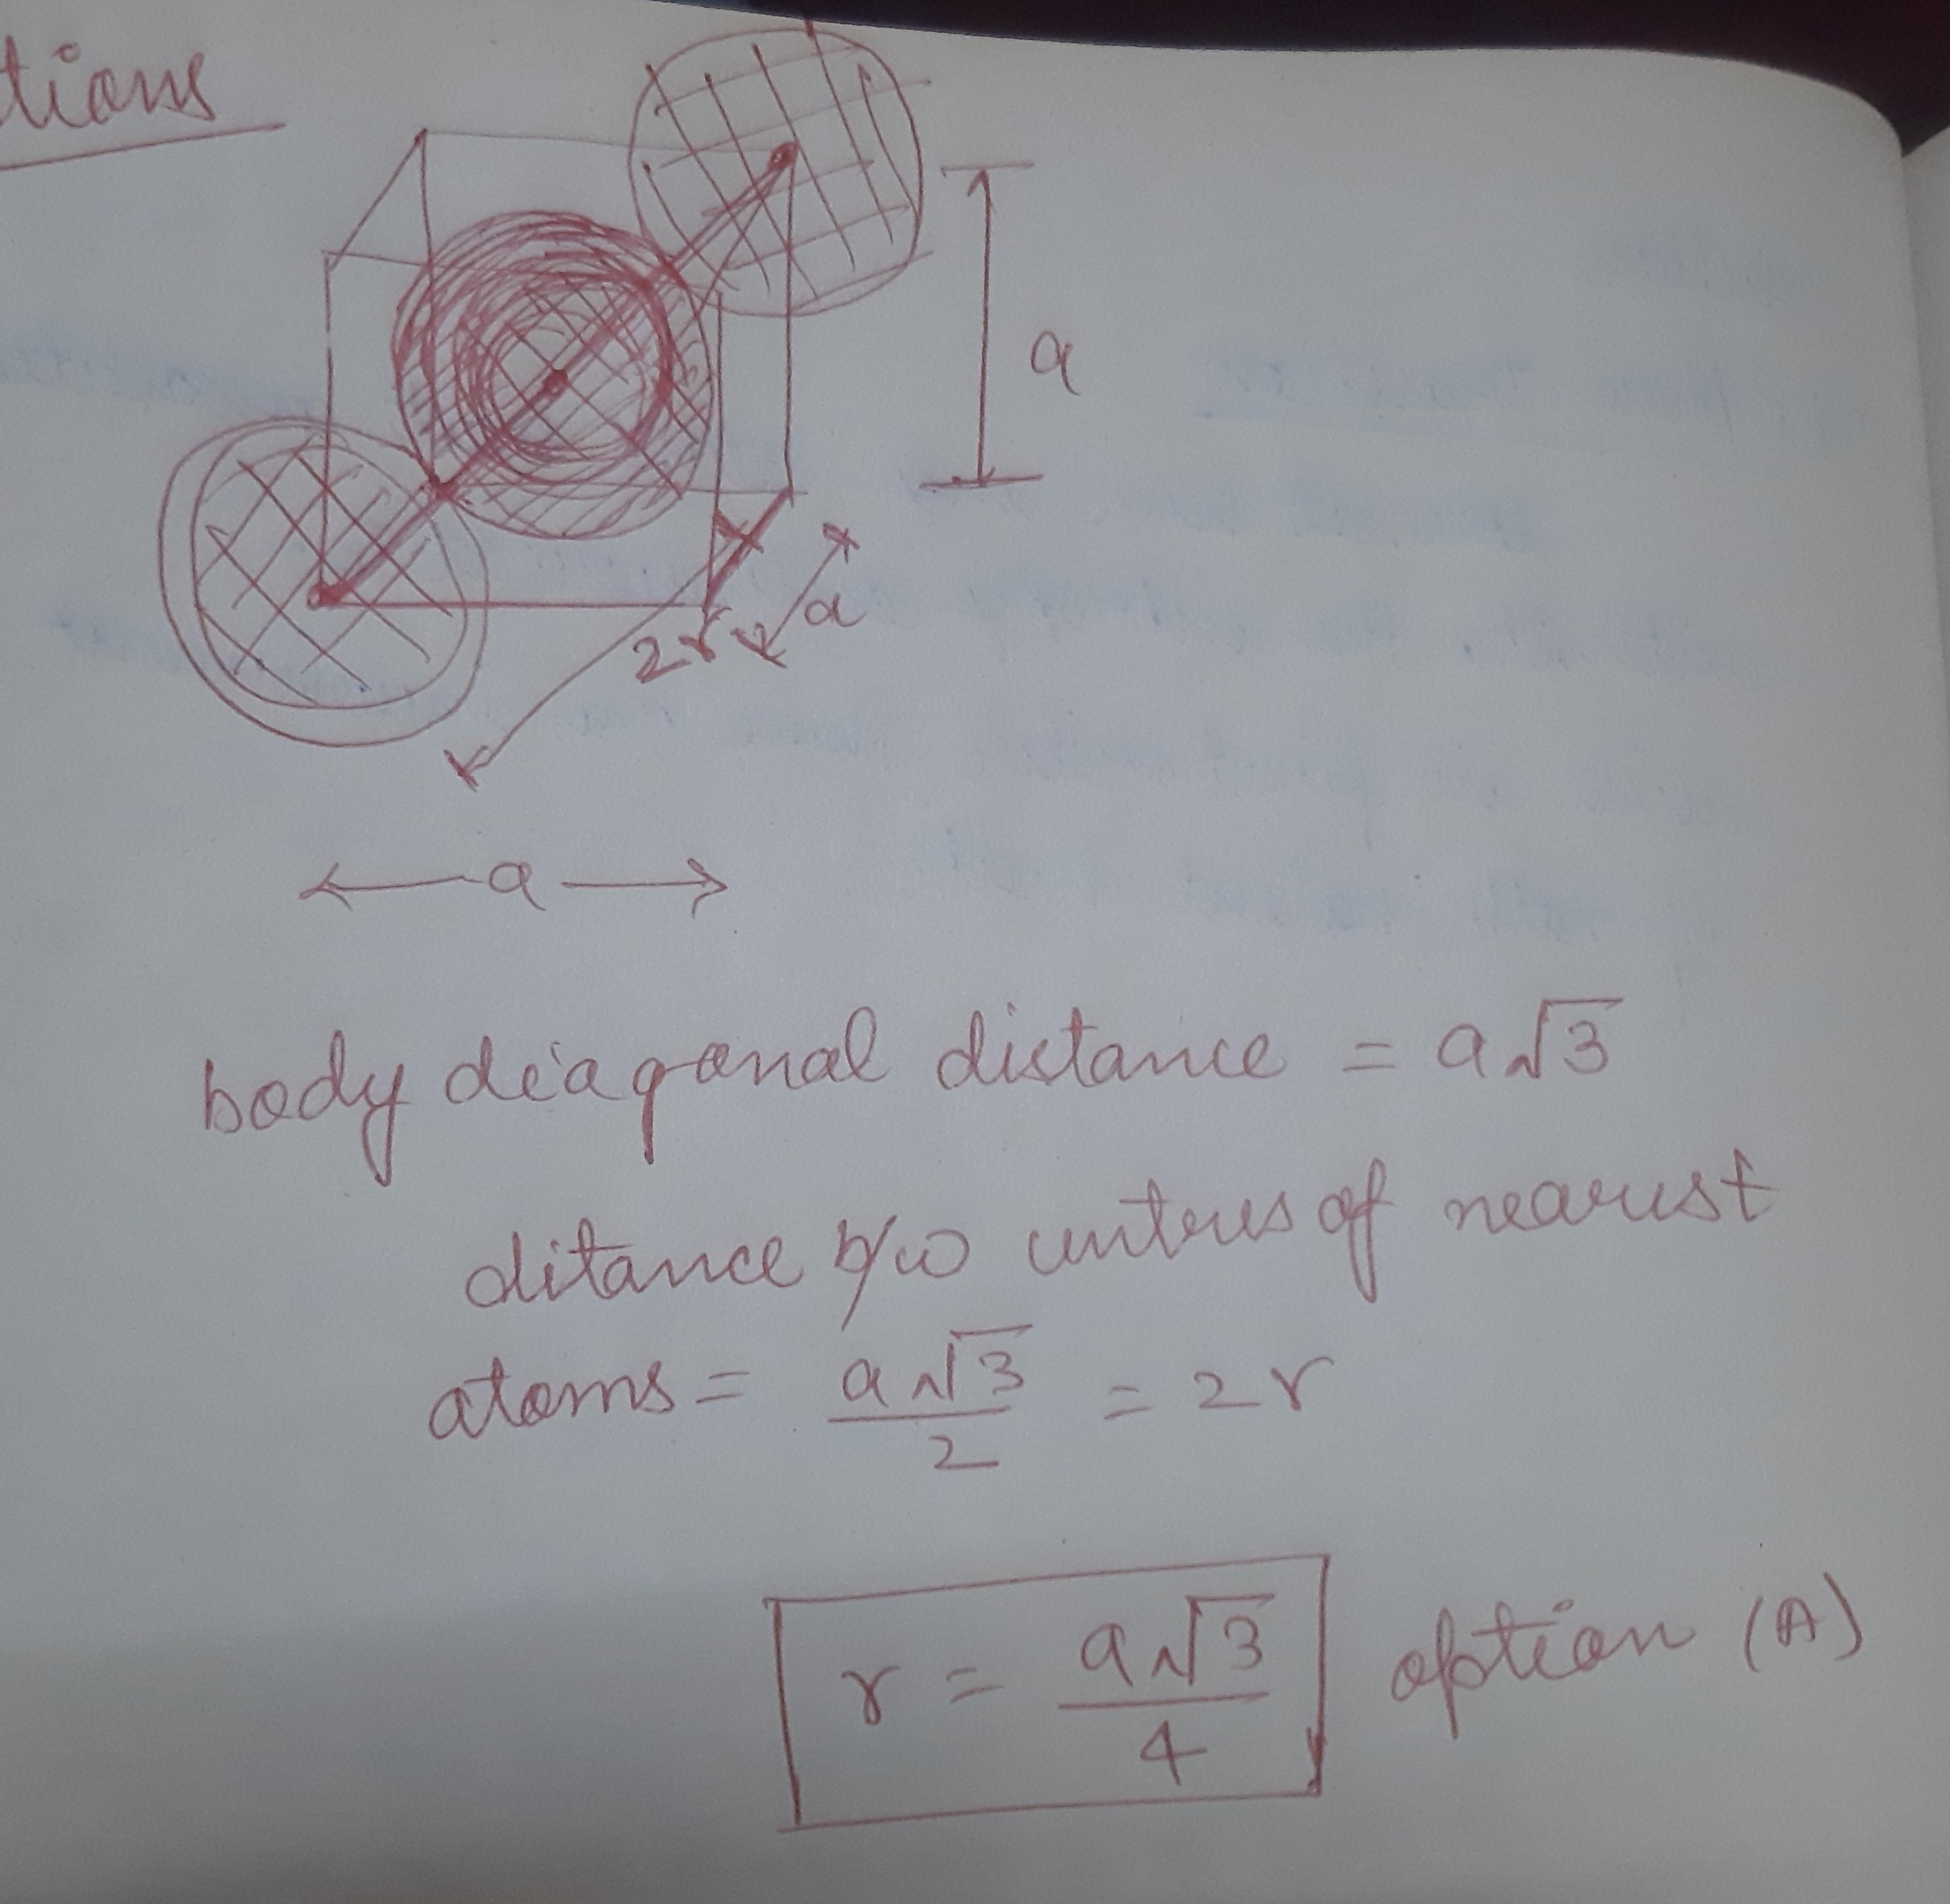 tions
a
2r
a
a
body diagonal distance = a√3
ditance b/w centres of nearest
atoms = a√3/2 = 2r
r = a√3/4 option (A)